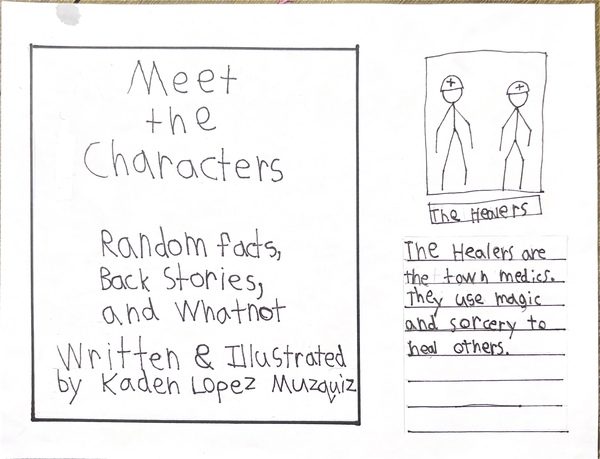 Meet
the
Characters
Random facts,
Back Stories,
and Whatnot
Written & Illustrated
by Kaden Lopez Muzquiz
The Healers
The Healers are
the town medics.
They use magic
and sorcery to
heal others.